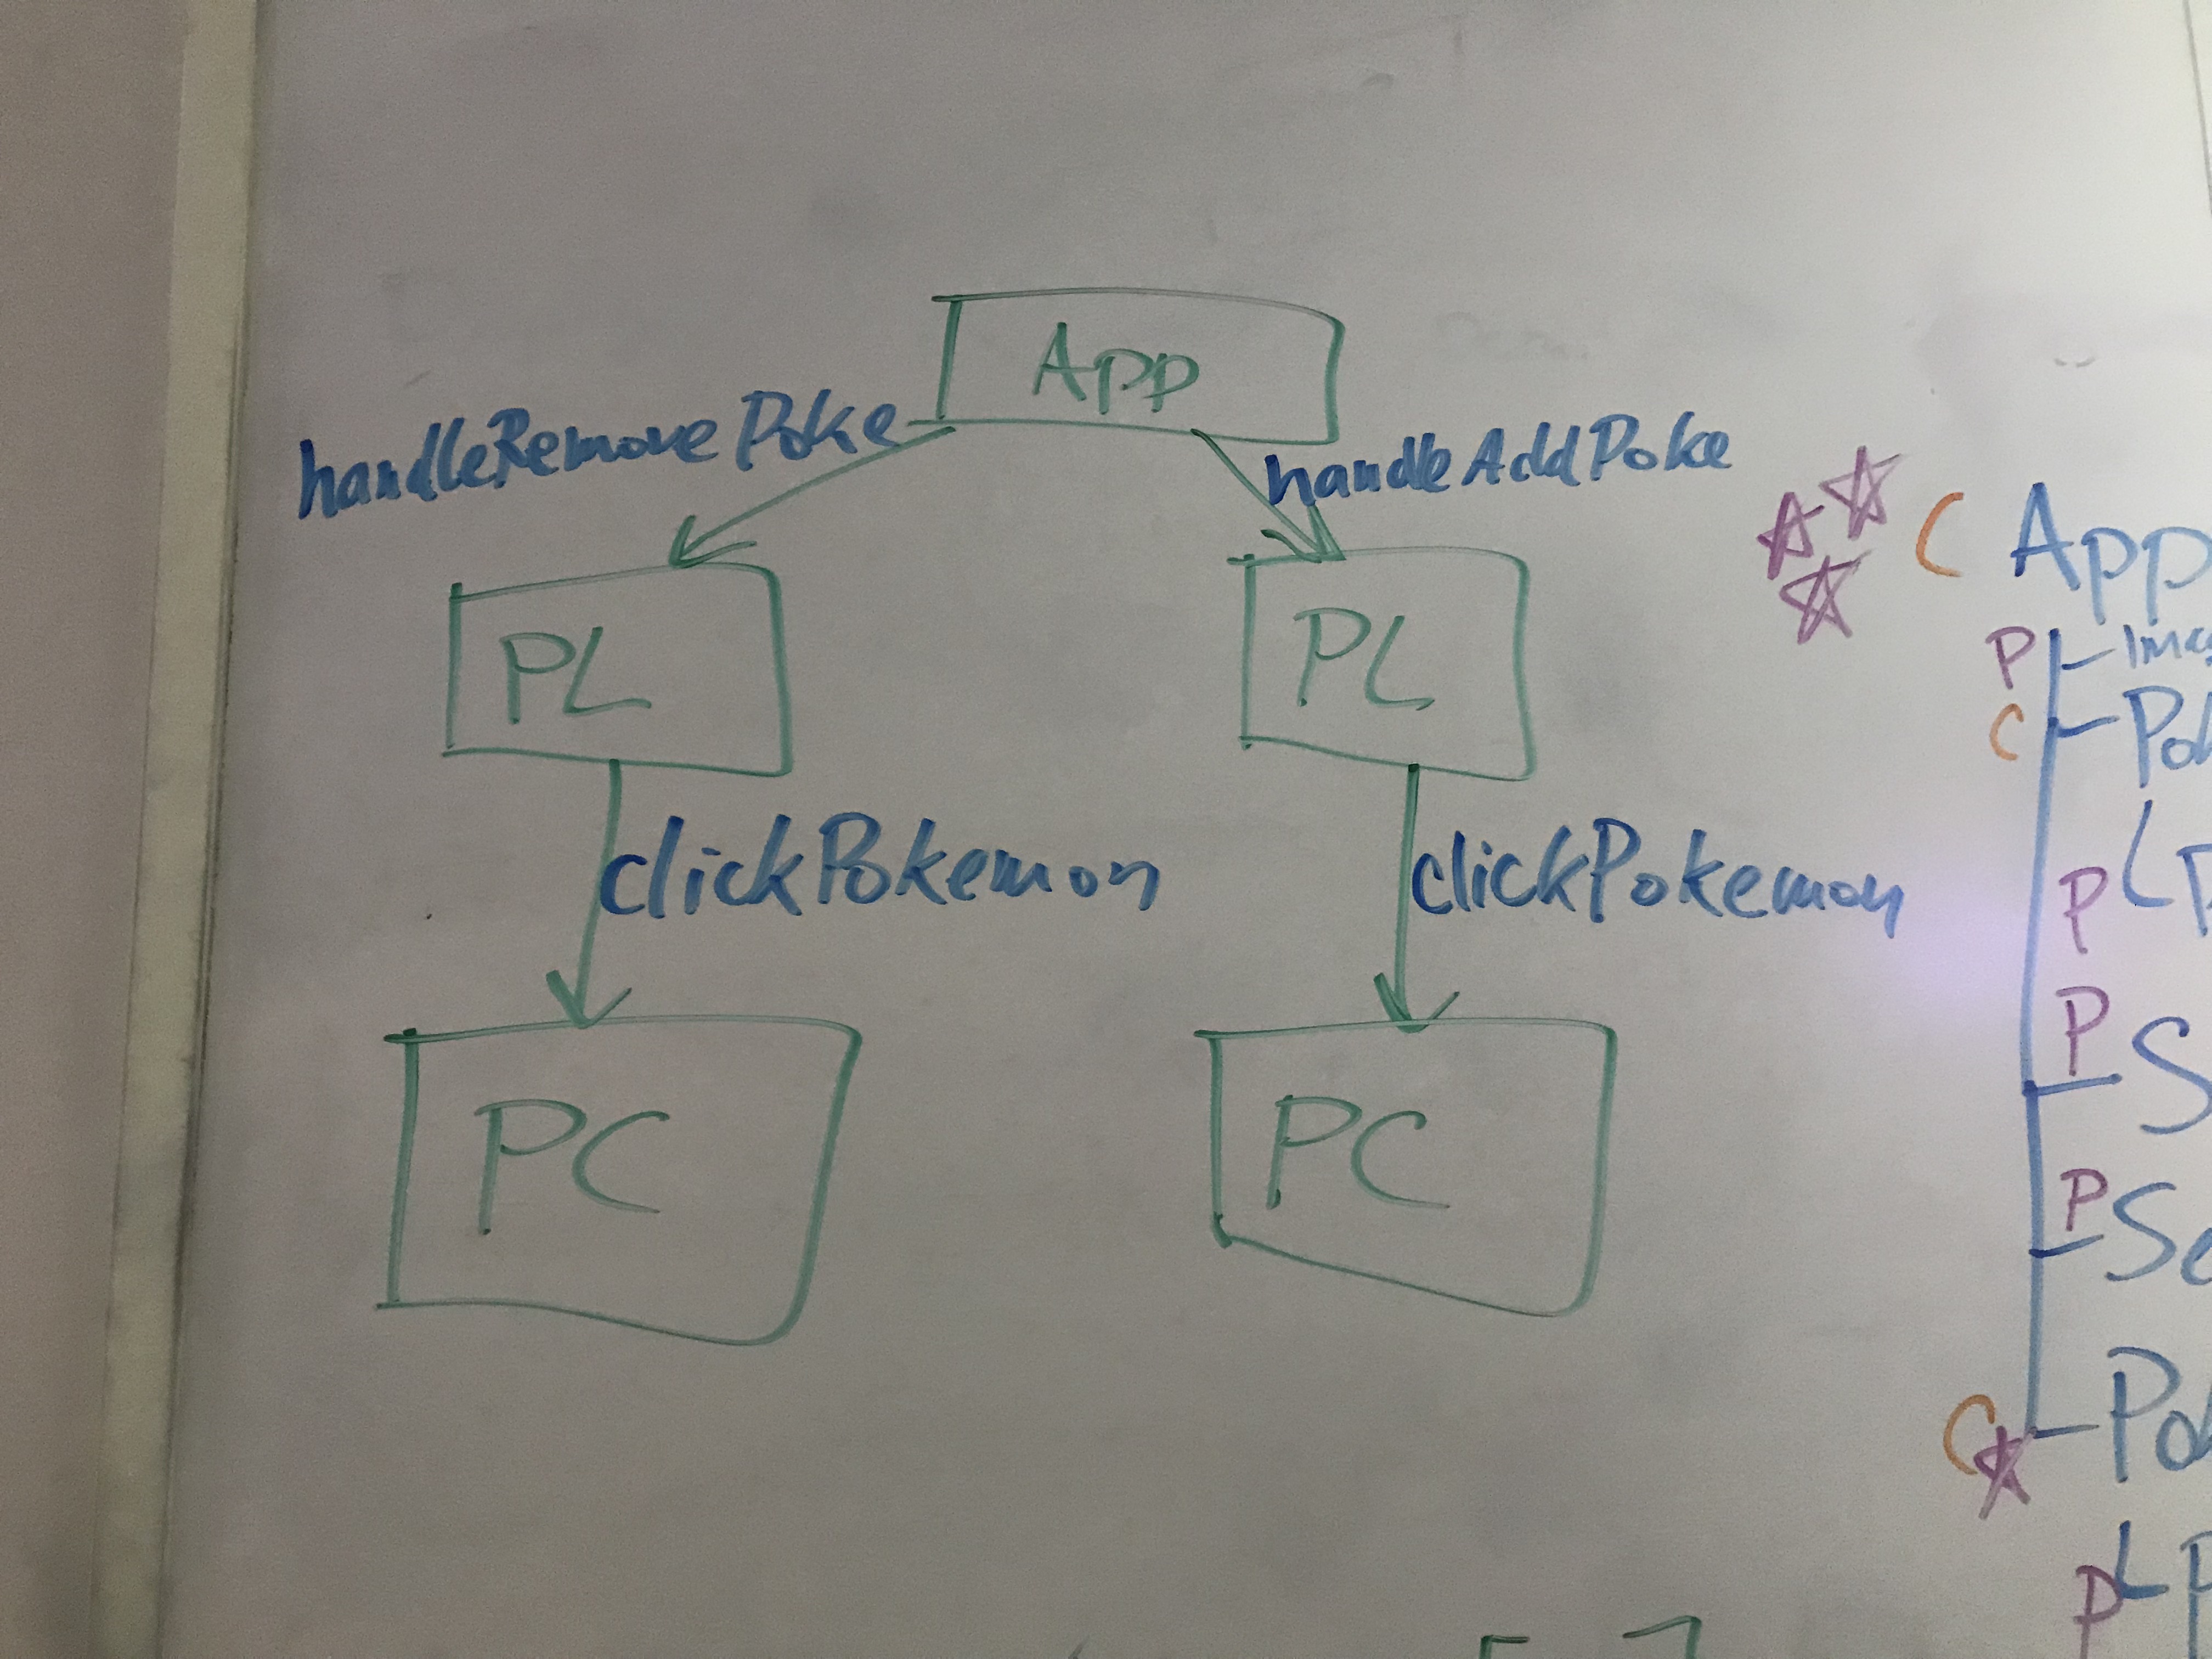 App
handleRemovePoke
handleAddPoke
PL
PL
clickPokemon
clickPokemon
PC
PC
C App
P
C
P
P S
P
C
P